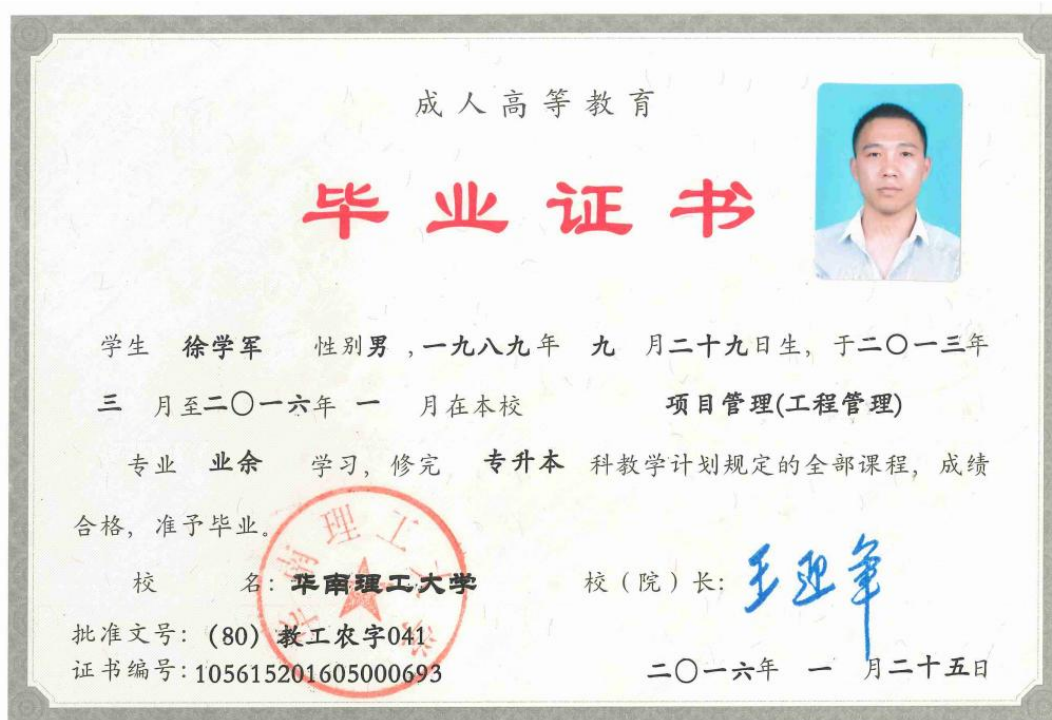 成人高等教育
毕业证书
学生 徐学军 性别男,一九八九年 九 月二十九日生, 于二〇一三年
三 月至二〇一六年 一 月在本校 项目管理(工程管理)
专业 业余 学习, 修完 专升本 科教学计划规定的全部课程, 成绩
合格, 准予毕业。
华南理工大学
校 名: 华南理工大学 校(院)长: 王迎军
批准文号: (80) 教工农字041
证书编号: 105615201605000693 二〇一六年 一 月二十五日